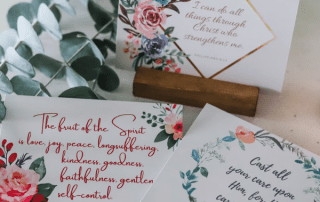 I can do all
things through
Christ who
strengthens me
The fruit of the Spirit
is love, joy, peace, longsuffering,
kindness, goodness,
faithfulness, gentlen
self-control
Cast all
your care upon
Him, for